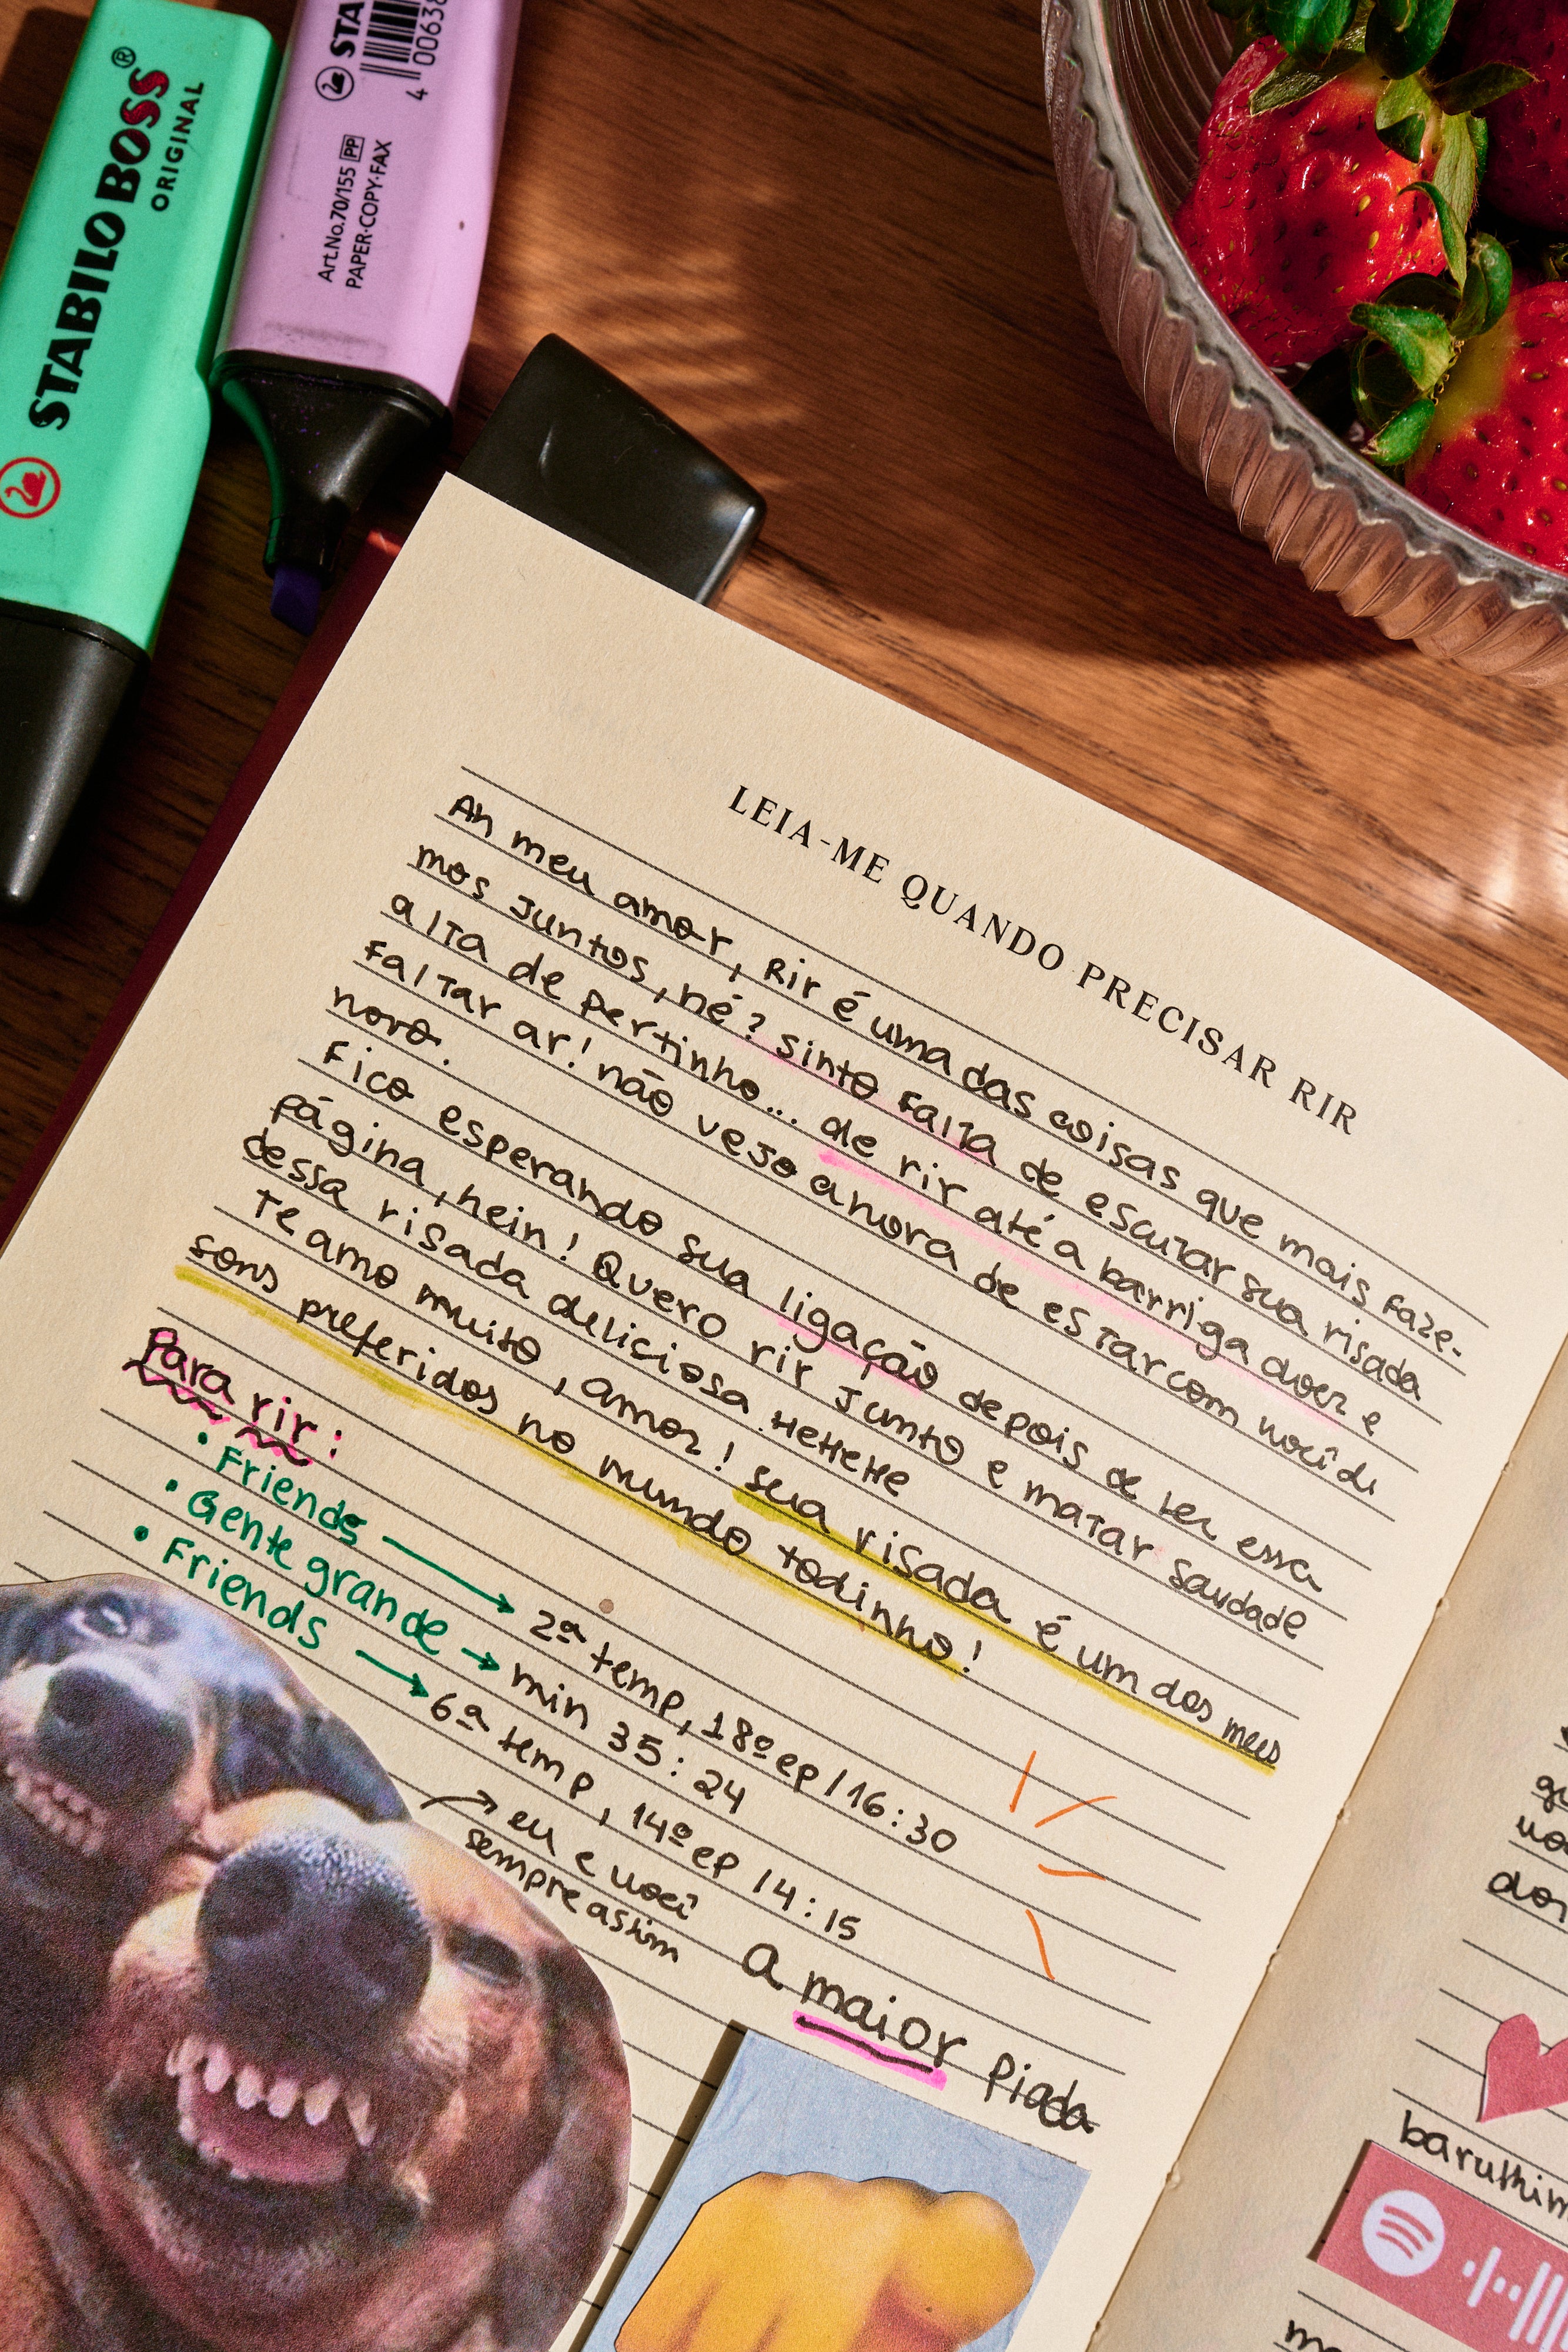 STABILO BOSS®
ORIGINAL
STA
4 00638
Art.No.70/155 PP
PAPER·COPY·FAX
LEIA-ME QUANDO PRECISAR RIR
Ah meu amor, Rir é uma das coisas que mais faze-
mos juntos, né? sinto falta de escutar sua risada
alta de pertinho... de rir até a barriga doer e
faltar ar! não vejo a hora de estar com você de
novo.
Fico esperando sua ligação depois de ler essa
página, hein! Quero rir junto e matar saudade
dessa risada deliciosa HeHeHe
Te amo muito, amor! sua risada é um dos meus
sons preferidos no mundo todinho!
Para rir:
• Friends → 2ª temp, 18º ep / 16:30
• Gente grande → min 35:24
• Friends → 6ª temp, 14º ep / 4:15
eu e você
sempre assim
a maior piada
do